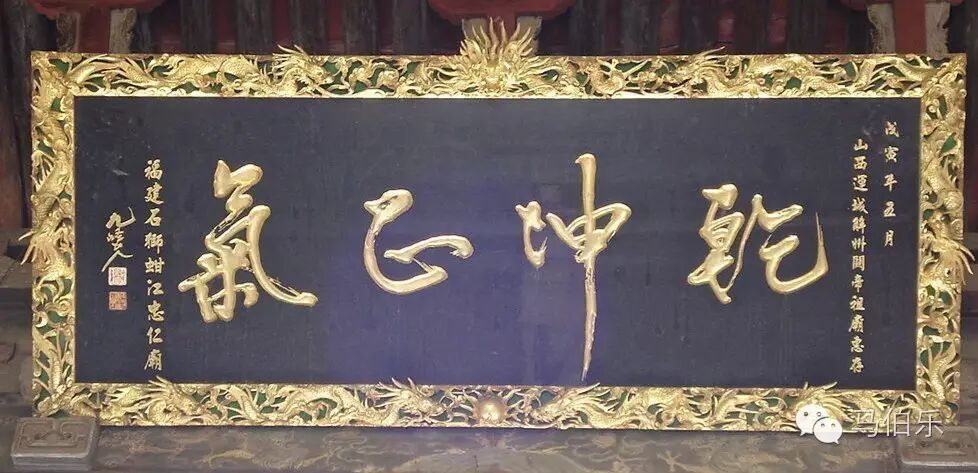 戊寅年五月
山西運城解州關帝祖廟惠存
乾坤正氣
福建石獅蚶江忠仁廟
玛伯乐